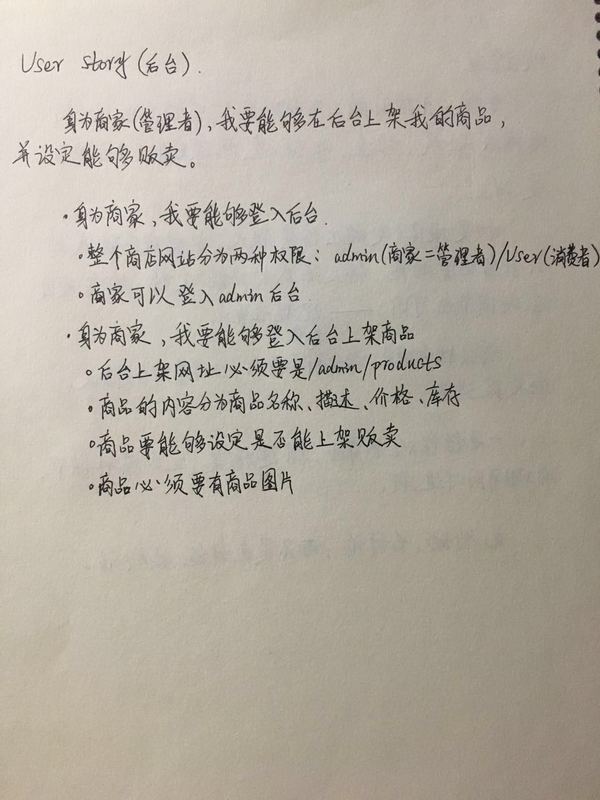 User story (后台).
身为商家(管理者), 我要能够在后台上架我的商品,
并设定能够贩卖。
·身为商家, 我要能够登入后台.
·整个商店网站分为两种权限: admin(商家=管理者)/User(消费者)
·商家可以登入admin后台.
·身为商家, 我要能够登入后台上架商品
∘后台上架网址必须要是/admin/products
∘商品的内容分为商品名称、描述、价格、库存
∘商品要能够设定是否能上架贩卖
∘商品必须要有商品图片